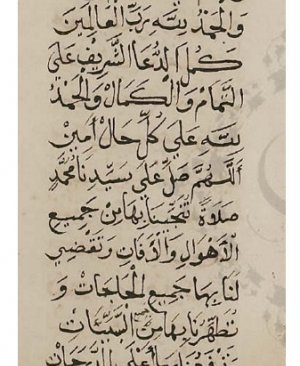 والحمد لله رب العالمين
كمل الدعا الشريف علي
التمام والكمال والحمد
لله علي كل حال امين
اللهم صل علي سيدنا محمد
صلاة تنجنا بها من جميع
الاهوال والافات وتقضي
لنا بها جميع الحاجات و
تطهرنا بها من السيئات
وترفعنا بها اعلي الدرجات